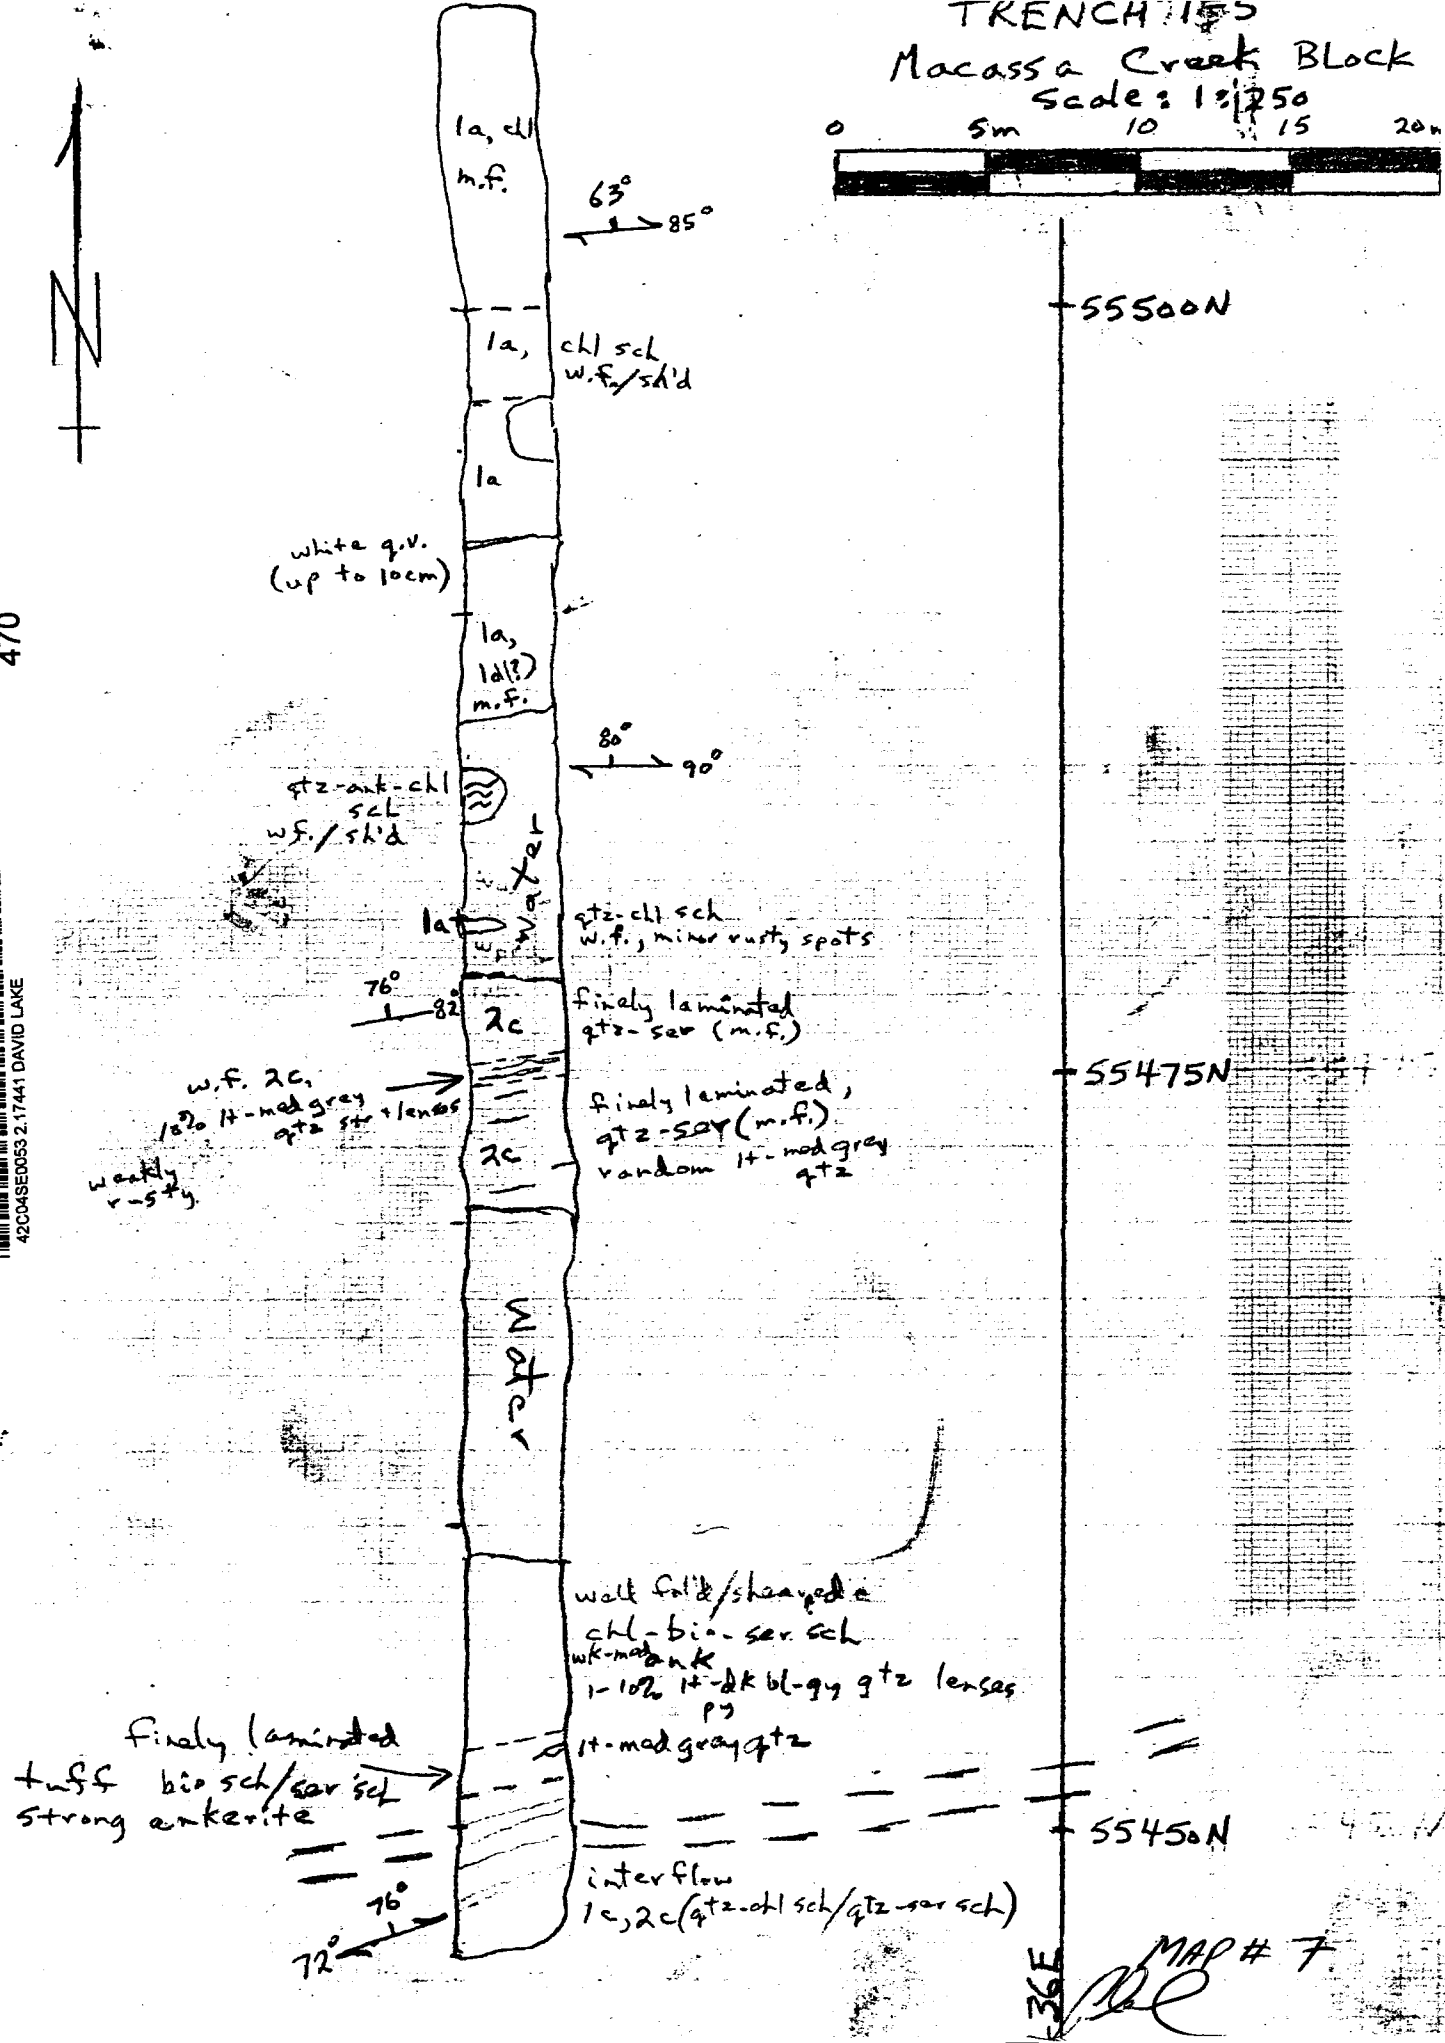 TRENCH
Macassa Creek BLock
Scale: 1:250
0 5m 10 15 20m
1a, chl
m.f.
63°
85°
55500N
1a, chl sch
w.f./sh'd
1a
white q.v.
(up to 10cm)
1a,
1d(?)
m.f.
80°
90°
qtz-ank-chl
sch
w.f./sh'd
Water
1a
qtz-chl sch
w.f., minor rusty spots
76°
82°
2c
finely laminated
qtz-ser (m.f.)
55475N
w.f. 2c,
10% lt-med grey
qtz str + lenses
weakly
rusty
finely laminated,
qtz-ser (m.f.)
random lt-med grey
qtz
2c
Water
well fol'd/sheared
chl-bio-ser sch
wk-mod ank
1-10% lt-dk bl-gy qtz lenses
py
lt-med gray qtz
finely laminated
tuff bio sch/ser sch
strong ankerite
55450N
interflow
1c, 2c (qtz-chl sch/qtz-ser sch)
76°
72°
36E
MAP # 7
N
470
42C04SE0053 2.17441 DAVID LAKE